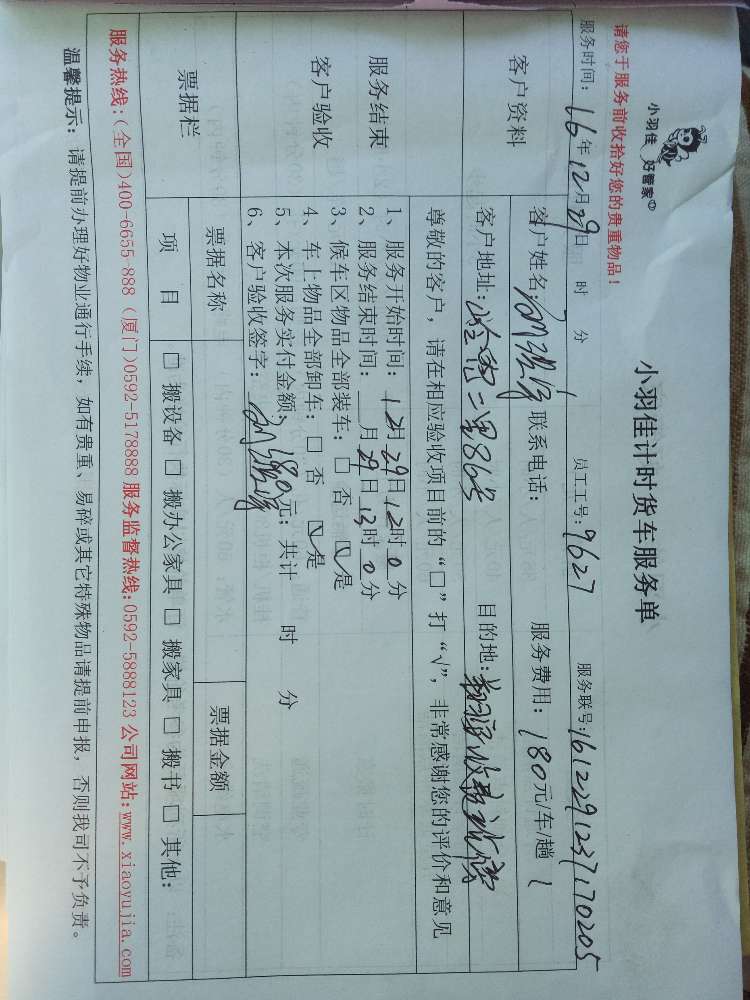 小羽佳 好管家
小羽佳计时货车服务单
请您于服务前收拾好您的贵重物品！
服务时间：16年12月29日 时 分 员工工号：9627 服务联号：1612291237170205
客户资料
客户姓名： 联系电话： 服务费用：180元/车/趟
客户地址：二里86号 目的地：
服务结束
客户验收
尊敬的客户，请在相应验收项目前的“□”打“√”，非常感谢您的评价和意见
1、服务开始时间：12月29日12时0分
2、服务结束时间： 月29日13时0分
3、候车区物品全部装车：□ 否 ☑是
4、车上物品全部卸车：□ 否 ☑是
5、本次服务实付金额：180元；共计 时 分
6、客户验收签字：
票据栏
票据名称 票据金额
项 目 □ 搬设备 □ 搬办公家具 □ 搬家具 □ 搬书 □ 其他：
服务热线：(全国)400-6655-888 (厦门)0592-5178888 服务监督热线:0592-5888123 公司网站:www.xiaoyujia.com
温馨提示：请提前办理好物业通行手续，如有贵重、易碎或其它特殊物品请提前申报，否则我司不予负责。